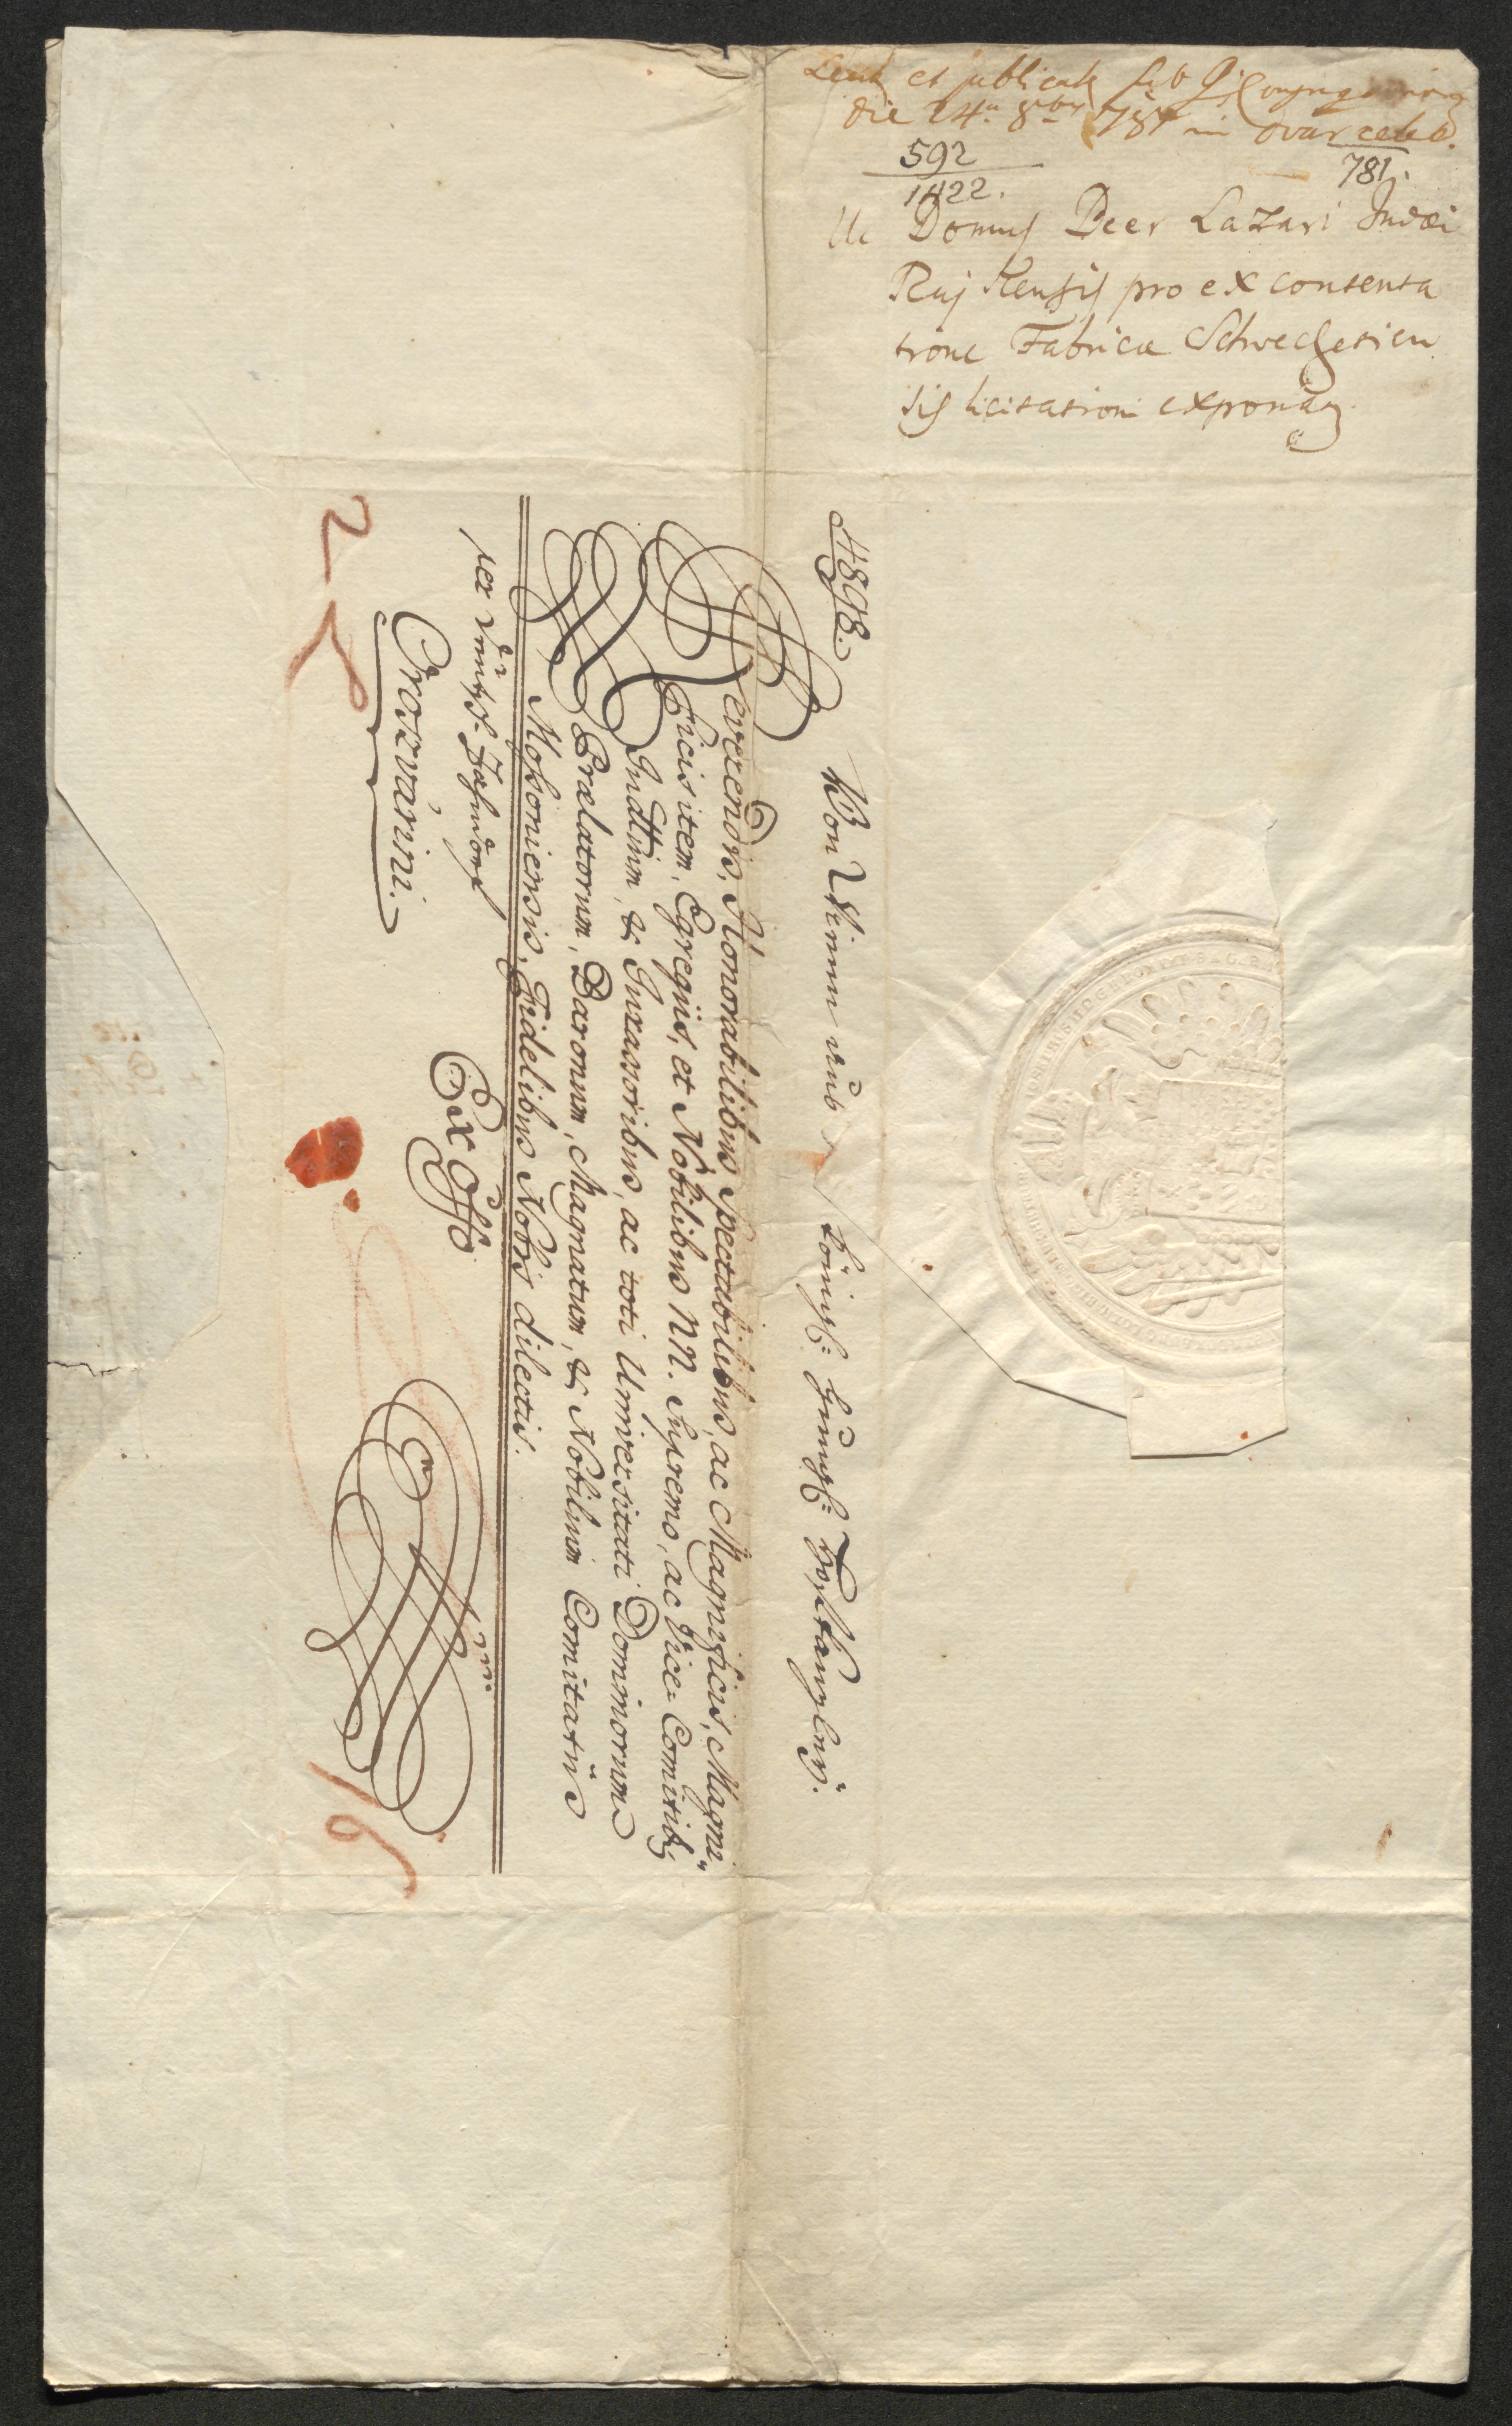 et publicat sub
die 24a 8bris 787 in Ovar celeb.
592
1422.
781.
Ut Domus Beer Lazari Judæi
Rajkensis pro excontenta
tione Fabricæ Schwechetien
sis licitationi exponaz
4898.
Von Wienn aus königl: hung: Hofkanzley.
Reverendis, Honorabilibus Spectabilibus, ac Magnificis, Magni„
ficis item, Egregiis, et Nobilibus NN. Supremo, ac Vice-Comitib9
Judlium, & Juraßoribus, ac toti Universitati Dominorum
Prælatorum, Baronum, Magnatum, & Nobilium Comitatûs
Mosoniensis, Fidelibus Nobis dilectis.
per
Oroszvárini.
Ex Offo
2
16